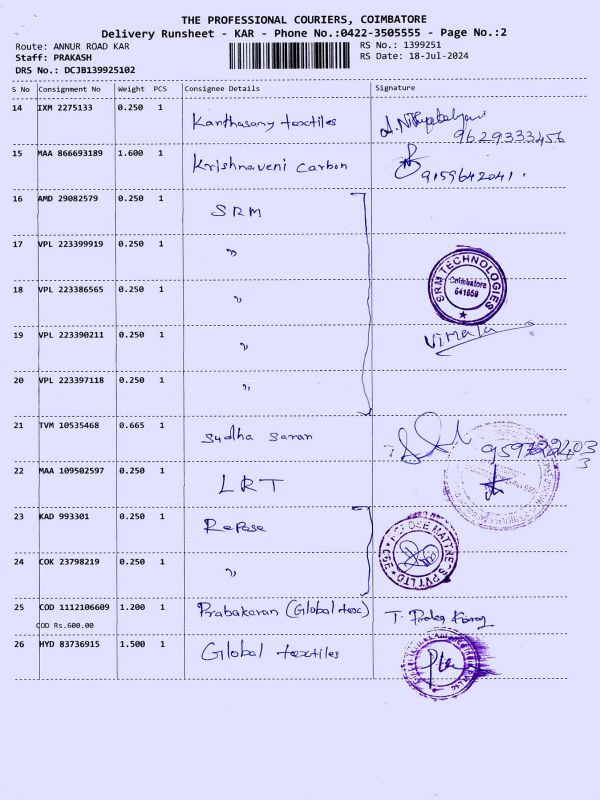 THE PROFESSIONAL COURIERS, COIMBATORE
Delivery Runsheet - KAR - Phone No.:0422-3505555 - Page No.:2
Route: ANNUR ROAD KAR
RS No.: 1399251
Staff: PRAKASH
RS Date: 18-Jul-2024
DRS No.: DCJB139925102
S No Consignment No Weight PCS Consignee Details Signature
14 IXM 2275133 0.250 1 Kanthasamy textiles 9629333456
15 MAA 866693189 1.600 1 Krishnaveni Carbon 9159642041.
16 AMD 29082579 0.250 1 SRM
17 VPL 223399919 0.250 1 "
18 VPL 223386565 0.250 1 "
SRM TECHNOLOGIES
Coimbatore
641659
19 VPL 223390211 0.250 1 " Vimala
20 VPL 223397118 0.250 1 "
21 TVM 10535468 0.665 1 Sudha Saran
22 MAA 109502597 0.250 1 LRT
23 KAD 993301 0.250 1 Repose
24 COK 23798219 0.250 1 "
REPOSE MATTRESS PVT LTD
25 COD 1112106609 1.200 1 Prabakaran (Global tex)
COD Rs.600.00
26 HYD 83736915 1.500 1 Global textiles